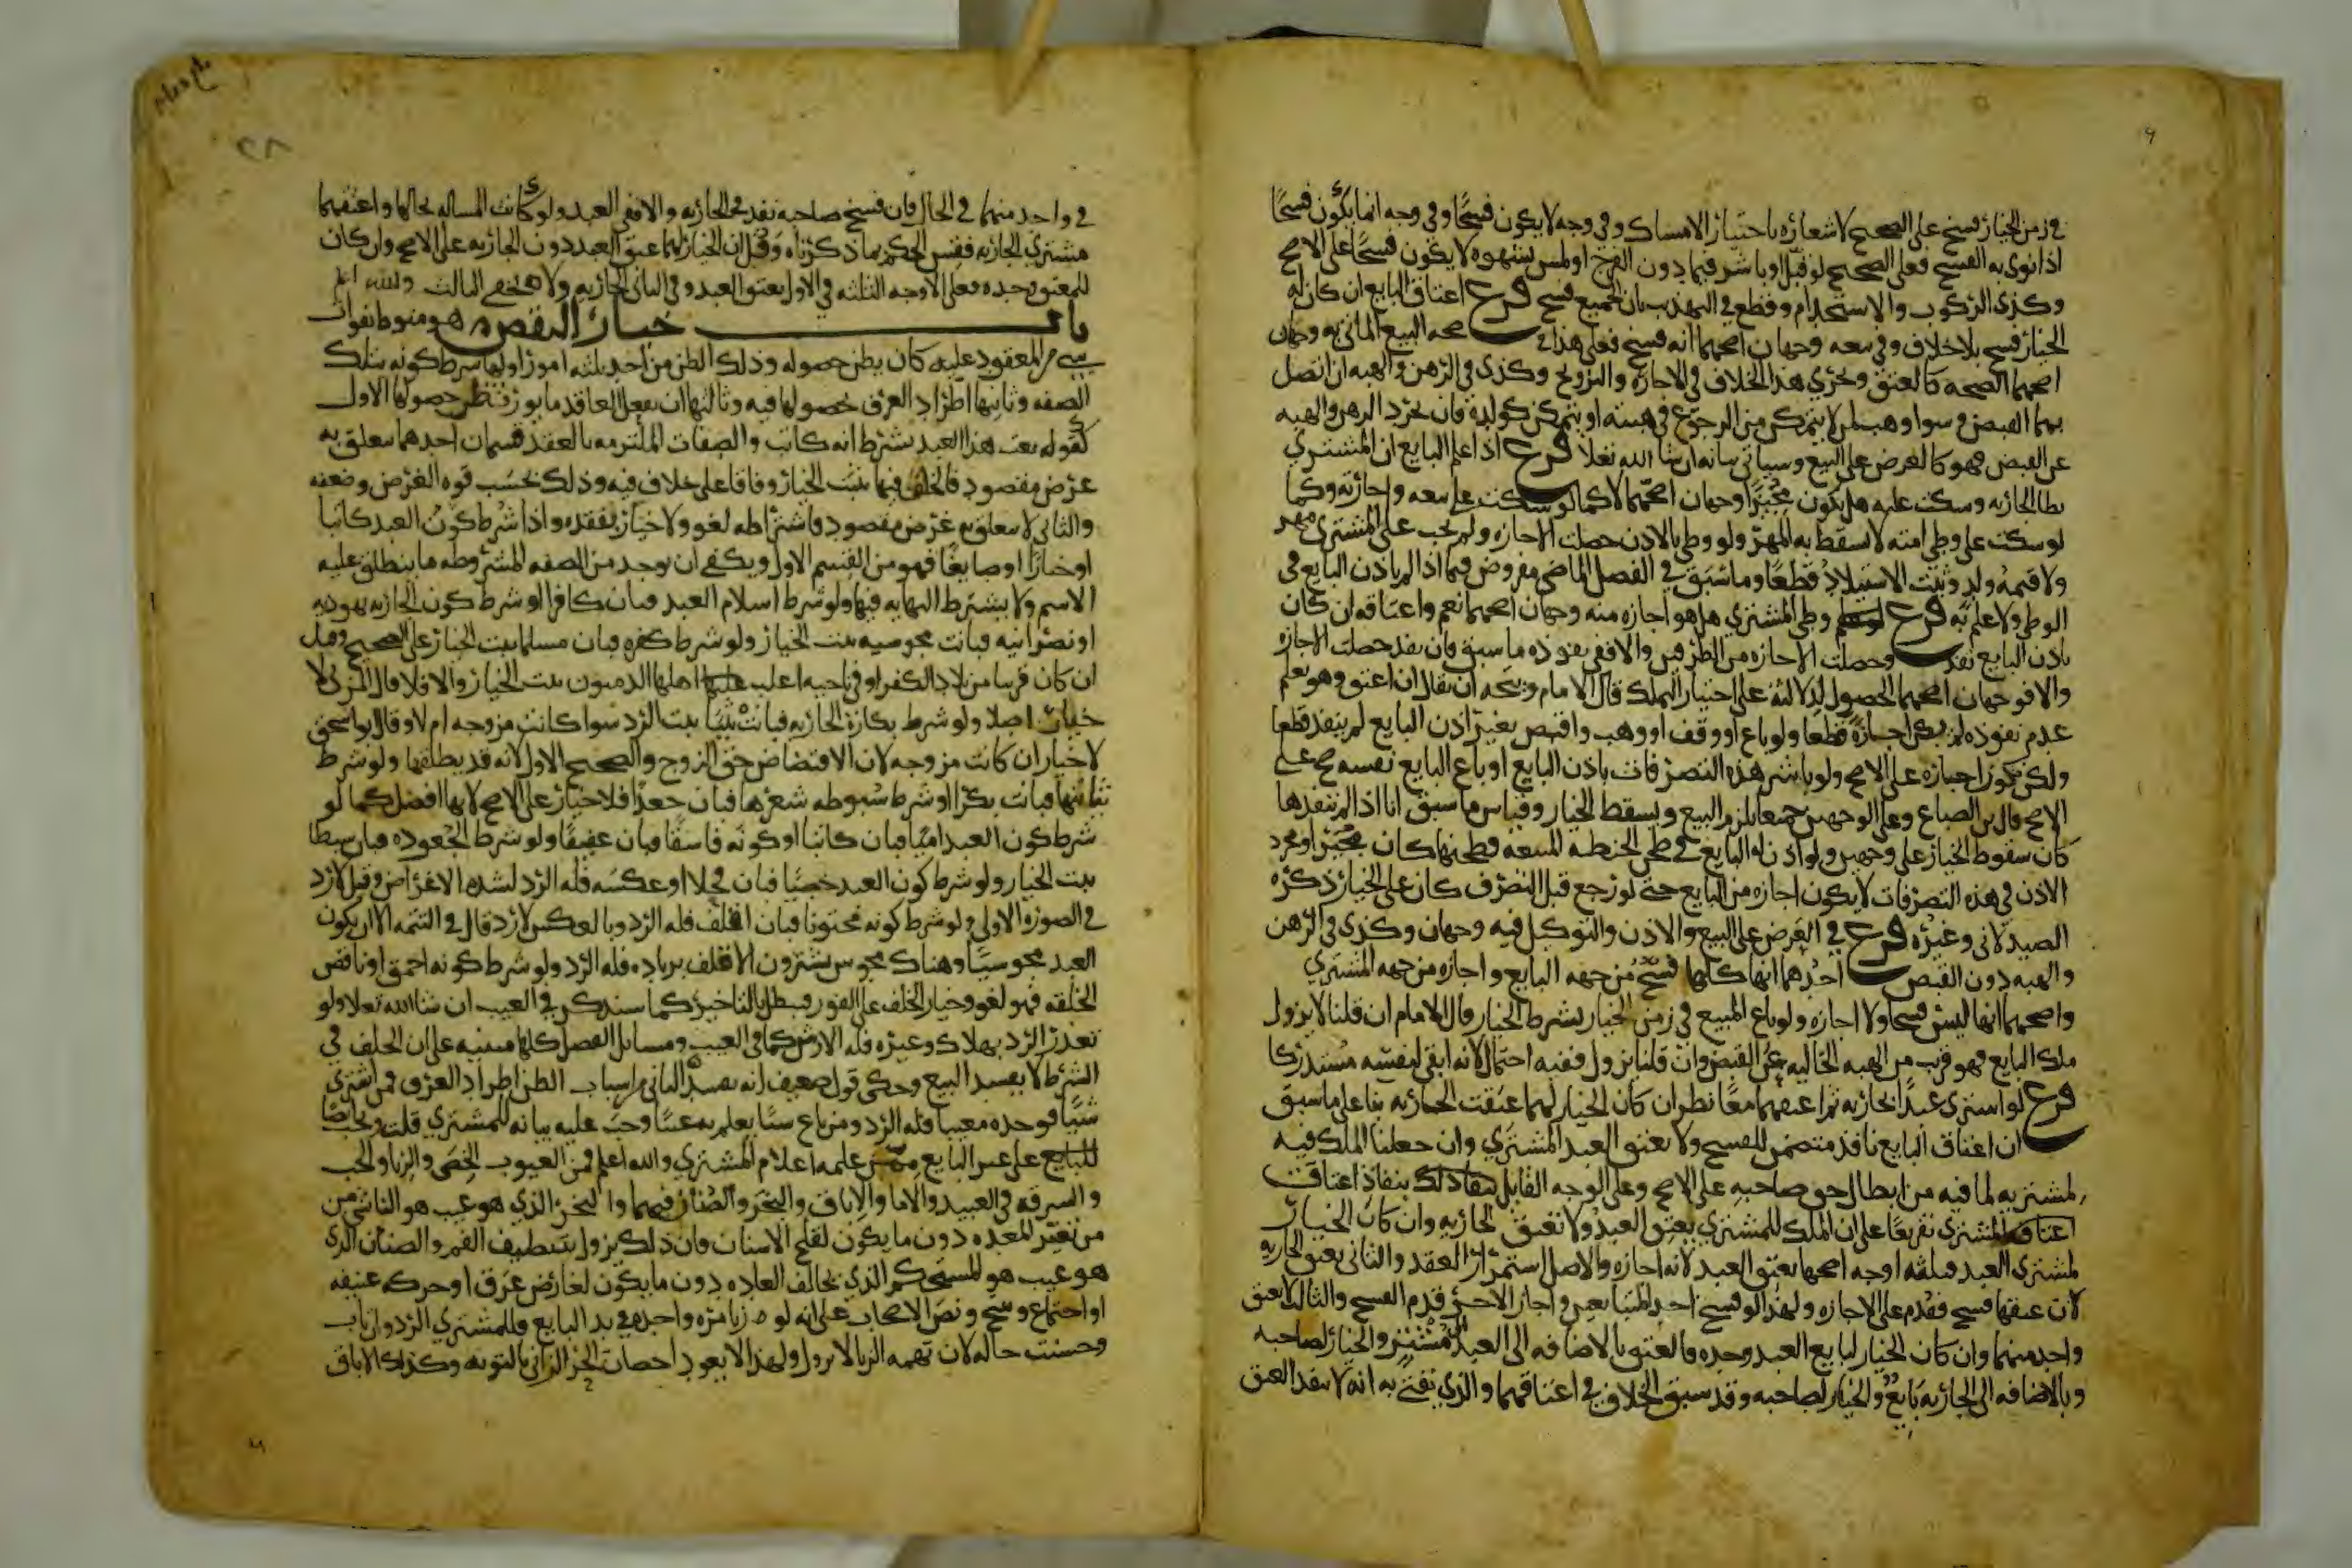 في زمن الخيار فسخ على الصحيح لاشعاره باختيار الامساك وفي وجه لا يكون فسخا وفي وجه انما يكون فسخا
اذا نوى به الفسخ فعلى الصحيح لو قبل او باشر فيما دون الفرج او لمس بشهوة لا يكون فسخا على الاصح
وكذى الركوب والاستخدام وقطع في التهذيب بان الجميع فسخ فرع اعتاق البايع ان كان له
الخيار فسخ بلا خلاف وفي بيعه وجهان اصحهما انه فسخ فعلى هذا في صحة البيع الماتي به وجهان
اصحهما الصحة كالعتق ويجري هذا الخلاف في الاجارة والتزويج وكذى في الرهن والهبة ان اتصل
بهما القبض وسوا وهب لمن لا يتمكن من الرجوع في هبته او يتمكن كولده فان تجرد الرهن والهبة
عن القبض فهو كالعرض على البيع وسياتي بيانه ان شا الله تعلا فرع اذا علم البايع ان المشتري
يطا الجارية وسكت عليه هل يكون مجيزا وجهان اصحهما لا كما لو سكت على بيعه واجارته وكما
لو سكت على وطي امته لا يسقط به المهر ولو وطي بالاذن حصلت الاجازة ولم يجب على المشتري مهر
ولا قيمة ولد وثبت الاستيلاد قطعا وما سبق في الفصل الماضي مفروض فيما اذا لم ياذن البايع في
الوطي ولا علم به فرع وطي المشتري هل هو اجازة منه وجهان اصحهما نعم واعتاقه ان كان
باذن البايع نفذ وحصلت الاجازة من الطرفين والا ففي نفوذه ما سبق فان نفذ حصلت الاجازة
والا فوجهان اصحهما الحصول لدلالته على اختيار التملك قال الامام ويتجه ان يقال ان اعتق وهو يعلم
عدم نفوذه لم يكن اجازة قطعا ولو باع او وقف او وهب واقبض بغير اذن البايع لم ينفذ قطعا
ولكن يكون اجازة على الاصح ولو باشر هذه التصرفات باذن البايع او باع البايع نفسه صح على
الاصح قال بن الصباغ وعلى الوجهين جميعا يلزم البيع ويسقط الخيار وقياس ما سبق انا اذا لم ننفذها
كان سقوط الخيار على وجهين ولو اذن له البايع في طحن الحنطة المبيعة فطحنها كان مجيزا ومجرد
الاذن في هذه التصرفات لا يكون اجازة من البايع حتى لو رجع قبل التصرف كان على الخيار ذكره
الصيدلاني وغيره فرع في العرض على البيع والاذن والتوكيل فيه وجهان وكذى في الرهن
والهبة دون القبض احدهما انها كلها فسخ من جهة البايع واجازة من جهة المشتري
واصحهما انها ليس فسخا ولا اجازة ولو باع المبيع في زمن الخيار بشرط الخيار قال الامام ان قلنا لا يزول
ملك البايع فهو قريب من الهبة الخالية عن القبض وان قلنا يزول ففيه احتمال لانه ابقى لنفسه مستدركا
فرع لو اشترى عبدا بجارية ثم اعتقهما معا نظر ان كان الخيار لهما عتقت الجارية بنا على ما سبق
ان اعتاق البايع نافذ متضمن للفسخ ولا يعتق العبد المشتري وان جعلنا الملك فيه
لمشتريه لما فيه من ابطال حق صاحبه على الاصح وعلى الوجه القايل بنفاذ اعتاق
المشتري تفريعا على ان الملك للمشتري يعتق العبد ولا تعتق الجارية وان كان الخيار
لمشتري العبد فثلثة اوجه اصحها يعتق العبد لانه اجازة والاصل استمرار العقد والثاني يعتق الجارية
لان عتقها فسخ فقدم على الاجازة ولهذا لو فسخ احد المتبايعين واجاز الاخر قدم الفسخ والثالث لا يعتق
واحد منهما وان كان الخيار لبايع العبد وحده فالعتق بالاضافة الى العبد مشتر والخيار لصاحبه
وبالاضافة الى الجارية بايع والخيار لصاحبه وقد سبق الخلاف في اعتاقهما والذي نفتي به انه لا ينفذ العتق
في واحد منهما في الحال فان فسخ صاحبه نفذ في الجارية والا ففي العبد ولو كانت المسالة بحالها واعتقهما
مشتري الجارية فقس الحكم بما ذكرناه وقل ان الخيار لهما عتق العبد دون الجارية على الاصح وان كان
للمعتق وحده فعلى الاوجه الثلثة في الاول يعتق العبد وفي الثاني الجارية ولا يخفى الثالث والله اعلم
باب خيار النقص هو منوط بفوات
شي من المعقود عليه كان يظن حصوله وذلك الظن من احد ثلثة امور اولها شرط كونه بتلك
الصفة وثانيها اطراد العرف بحصولها فيه وثالثها ان يفعل العاقد ما يورث ظن حصولها الاول
كقوله بعت هذا العبد بشرط انه كاتب والصفات الملتزمة بالعقد قسمان احدهما يتعلق به
غرض مقصود فالخلف فيها يثبت الخيار وفاقا على خلاف فيه وذلك بحسب قوة الغرض وضعفه
والثاني لا يتعلق به غرض مقصود فاشتراطه لغو ولا خيار بفقده واذا شرط كون العبد كاتبا
او خبازا او صايغا فهو من القسم الاول ويكفي ان يوجد من الصفة المشروطة ما ينطلق عليه
الاسم ولا يشترط النهاية فيها ولو شرط اسلام العبد فبان كافرا او شرط كون الجارية يهودية
او نصرانية فبانت مجوسية ثبت الخيار ولو شرط كفره فبان مسلما ثبت الخيار على الصحيح وقيل
ان كان قريبا من بلاد الكفر او في ناحية اغلب اهلها الذميون ثبت الخيار والا فلا قال المزني لا
خيار اصلا ولو شرط بكارة الجارية فبانت ثيبا ثبت الرد سوا كانت مزوجة ام لا وقال بو اسحق
لا خيار ان كانت مزوجة لان الافتضاض حق الزوج والصحيح الاول لانه قد يطلقها ولو شرط
ثيابتها فبانت بكرا او شرط سبوطة شعرها فبان جعدا فلا خيار على الاصح لانها افضل كما لو
شرط كون العبد اميا فبان كاتبا او كونه فاسقا فبان عفيفا ولو شرط الجعودة فبان سبطا
ثبت الخيار ولو شرط كون العبد خصيا فبان فحلا او عكسه فله الرد لشدة الاغراض وقيل لا رد
في الصورة الاولى ولو شرط كونه مختونا فبان اقلف فله الرد وبالعكس لا رد قال في التتمة الا ان يكون
العبد مجوسيا وهناك مجوس يشترون الاقلف بزيادة فله الرد ولو شرط كونه احمق او ناقص
الخلقة فهو لغو وخيار الخلف على الفور فيبطل بالتاخير كما سنذكر في العيب ان شا الله تعلا ولو
تعذر الرد بهلاك وغيره فله الارش كما في العيب ومسايل الفصل كلها مبنية على ان الخلف في
الشرط لا يفسد البيع وحكى قول ضعيف انه يفسده الثاني من اسباب الظن اطراد العرف فمن اشترى
شيا فوجده معيبا فله الرد ومن باع شيا يعلم به عيبا وجب عليه بيانه للمشتري قلت ويجب ايضا
على غير البايع ممن علمه اعلام المشتري والله اعلم فمن العيوب الخصى والزنا والجب
والسرقة في العبيد والاما والاباق والبخر والصنان فيهما والبخر الذي هو عيب هو الناشي من
من تغير المعدة دون ما يكون لقلح الاسنان فان ذلك يزول بتنظيف الفم والصنان الذي
هو عيب هو المستحكم الذي يخالف العادة دون ما يكون لعارض عرق او حركة عنيفة
او اجتماع وسخ ونص الاصحاب على انه لو زنا مرة واحدة في يد البايع فللمشتري الرد وان تاب
وحسنت حاله لان تهمة الزنا لا تزول ولهذا لا يعود احصان الحر الزاني بالتوبة وكذلك الاباق